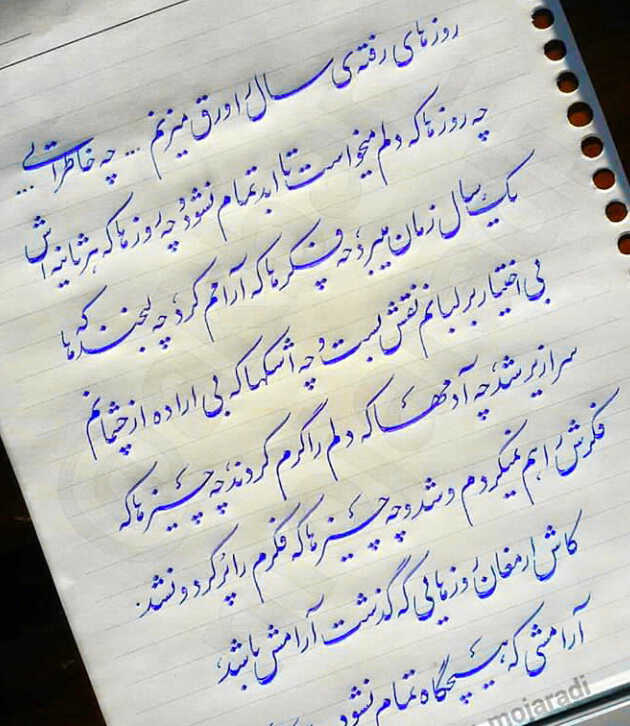 روزهای رفته‌ی سال را ورق میزنم ... چه خاطراتی ...
چه روزها که دلم میخواست تا ابد تمام نشود و چه روزها که هر ثانیه اش
یک سال زمان میبرد، چه فکرها که آرامم کرد، چه لبخندها که
بی اختیار بر لبانم نقش بست و چه اشکها که بی اراده از چشمانم
سرازیر شد، چه آدمها که دلم را گرم کردند، چه چیزها که
فکرش را هم نمیکردم و شد و چه چیزها که فکرم را پر کرد و نشد.
کاش ارمغان روزهایی که گذشت آرامش باشد،
آرامشی که هیچگاه تمام نشود
mojaradi